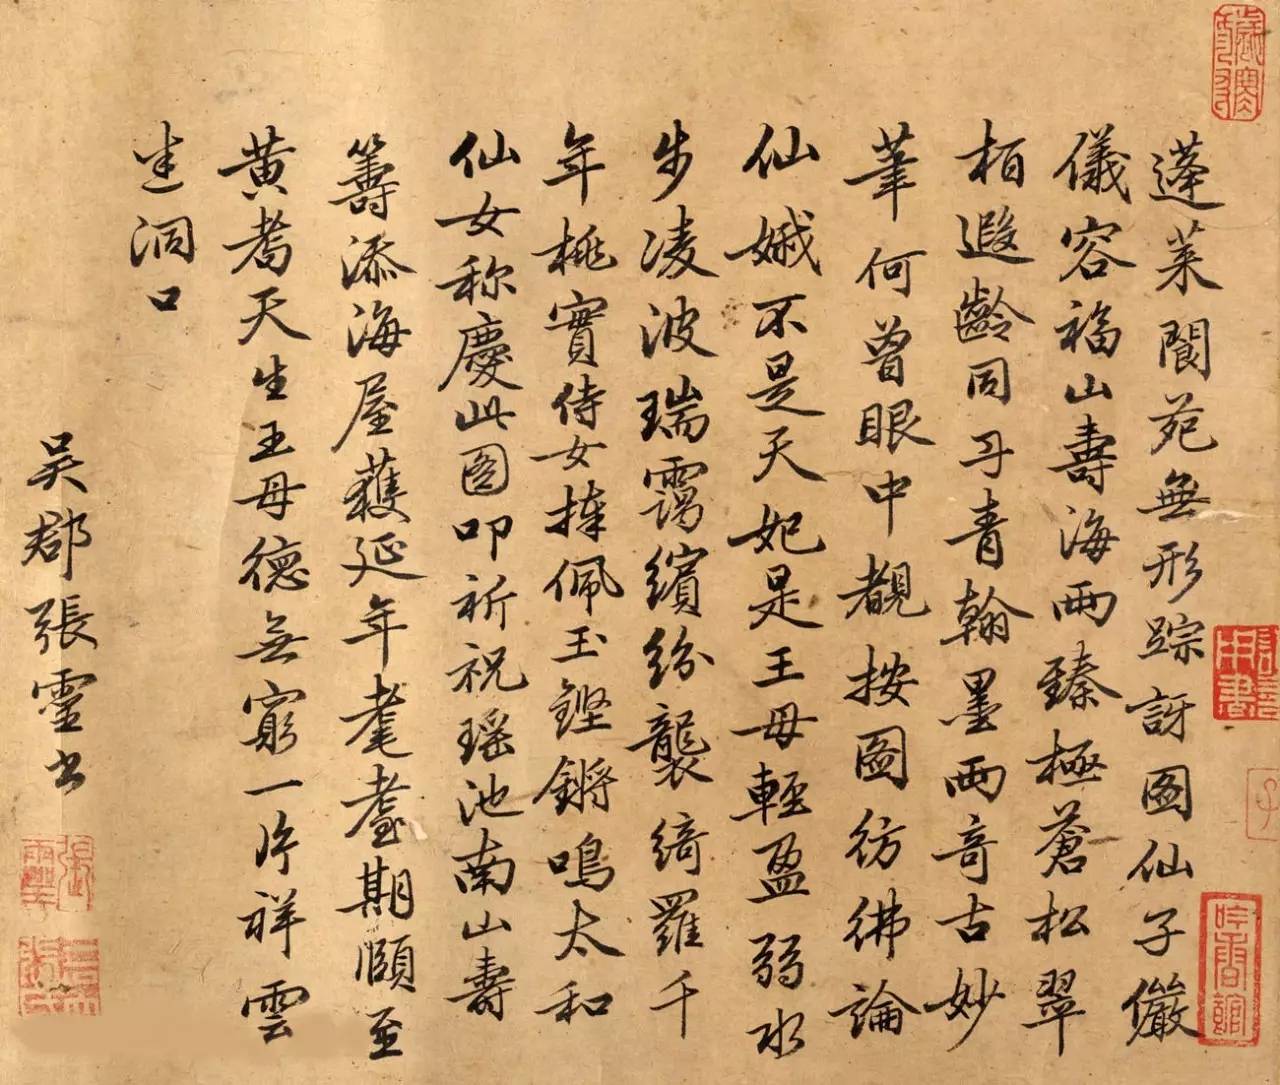 蓬萊閬苑無形踪訝圖仙子儼
儀容福山壽海兩臻極蒼松翠
栢遐齡同予青翰墨兩奇古妙
筆何曾眼中覩按圖彷彿論
仙娥不是天妃是王母輕盈弱水
步凌波瑞靄繽紛襲綺羅千
年桃實侍女捧佩玉鏗鏘鳴太和
仙女称慶此圖叩祈祝瑶池南山壽
籌添海屋蘐延年耄耋期頤至
黄耇天生王母德無窮一片祥雲
迷洞口
吳郡張靈書
吟香館